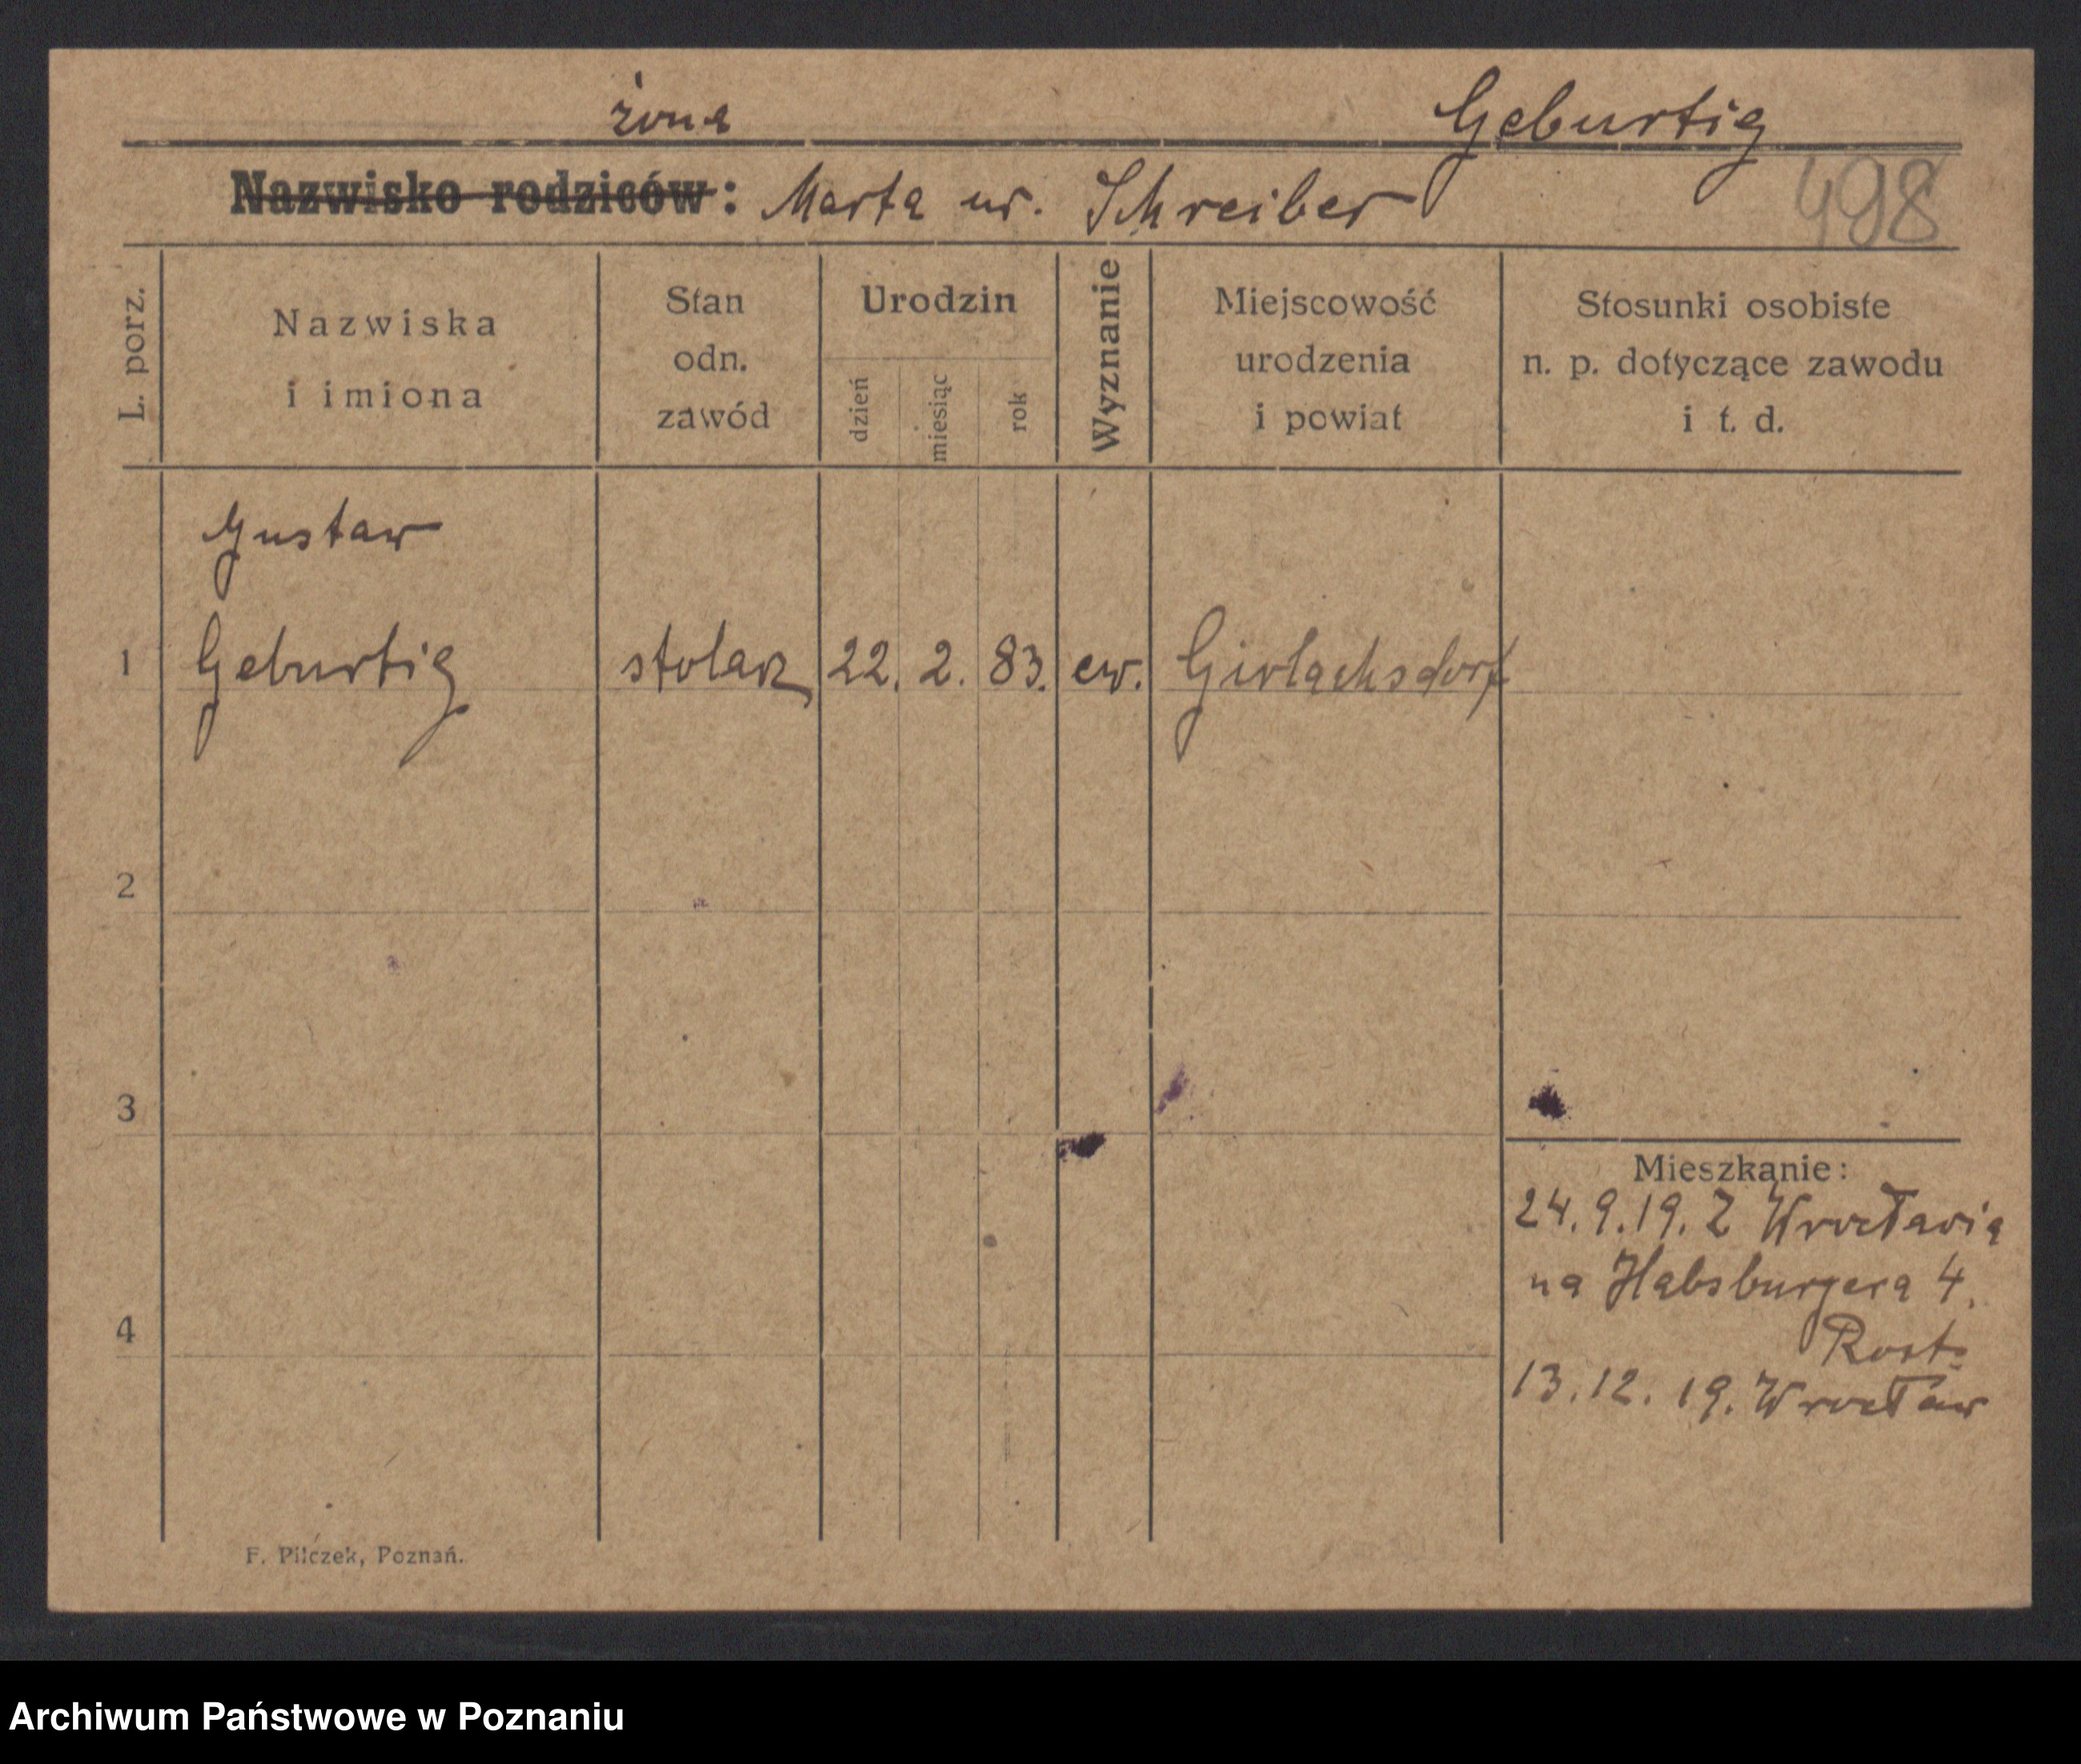 żona Geburtig
Nazwisko rodziców: Marta ur. Schreiber 498
L. porz.
Nazwiska
i imiona
Stan
odn.
zawód
Urodzin
dzień
miesiąc
rok
Wyznanie
Miejscowość
urodzenia
i powiat
Stosunki osobiste
n. p. dotyczące zawodu
i t. d.
Gustaw
1 Geburtig stolarz 22. 2. 83. ew. Girlachsdorf
2
3
4
Mieszkanie:
24.9.19. Z Wrocławia
na Habsburgera 4.
13.12.19. Wrocław
F. Pilczek, Poznań.
Archiwum Państwowe w Poznaniu